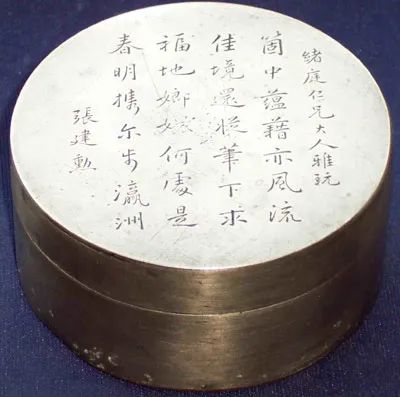 緒庭仁兄大人雅玩
箇中蘊藉亦風流
佳境還從筆下求
福地嫏嬛何處是
春明携尔步瀛洲
張建勲